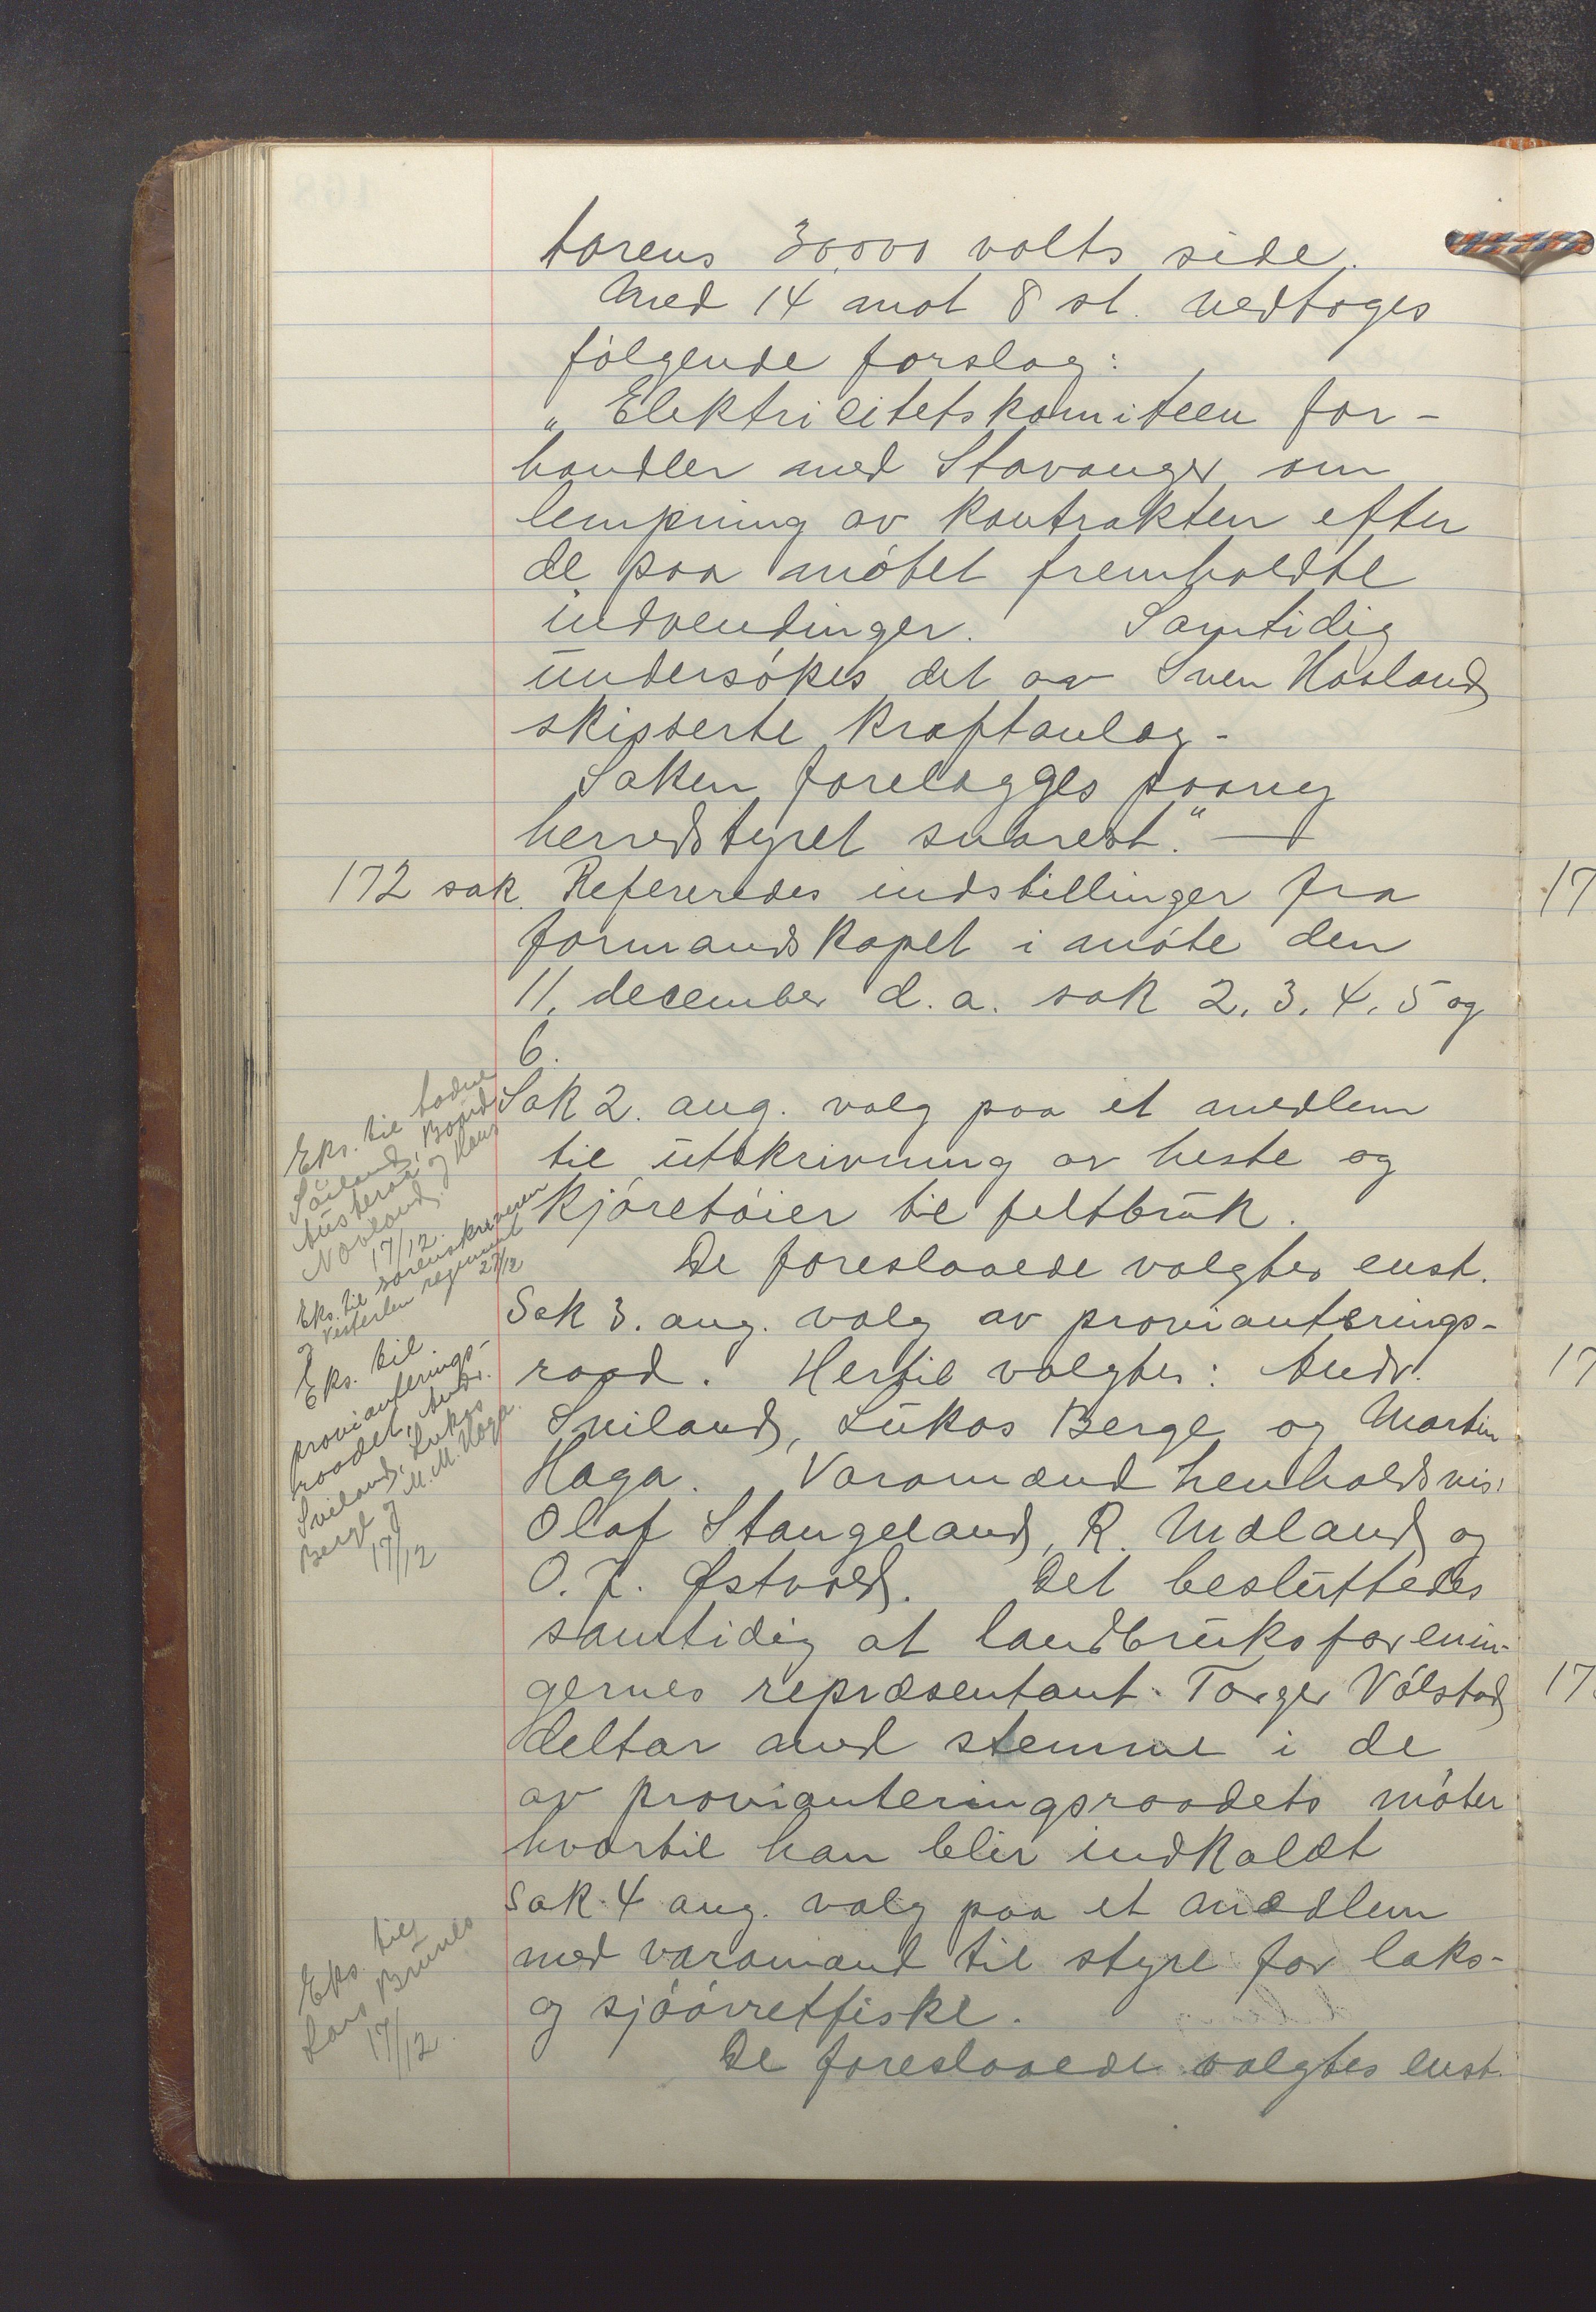 torens 30,000 volts side.
Med 14 mot 8 st. vedtoges
følgende forslag:
„Elektricitetskomiteen for-
handler med Stavanger om
lempning av kontrakten efter
de paa møtet fremholdte
indvendinger. Samtidig
undersøkes det av Sven Haaland
skisserte kraftanlæg.
Saken forelægges paany
herredstyret snarest."—
172 sak. Refereredes indstillinger fra
formandskapet i møte den
11. december d.a. sak 2, 3, 4, 5 og
6.
Sak 2. ang. valg paa et medlem
til utskrivning av heste og
kjøretøier til feltbruk.
De foreslaaede valgtes enst.
Sak 3. ang. valg av provianterings-
raad. Hertil valgtes: Andr.
Sviland, Lukas Berge og Martin
Haga. Varamænd henholdsvis:
Olaf Stangeland, R. Mæland og
O. J. Østvold. Det besluttedes
samtidig at landbruksforenin-
gernes repræsentant Torger Vølstad
deltar med stemme i de
av provianteringsraadets møter
hvortil han blir indkaldt
Sak 4 ang. valg paa et medlem
med varamand til styre for laks-
og sjøørretfiske.
De foreslaaede valgtes enst.
Eks. til Tadne
Søiland, Baard
Austeraa og Hans
Norland.
17/12.
Eks. til sorenskriveren
og Vesterlen regiment
27/12
Eks. til
provianterings-
raadet, Andr.
Sviland, Lukas
Berge og M. M. Haga.
17/12
Eks. til
Lars Brunes
17/12.
17
17
17